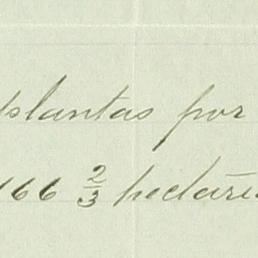 plantas por
166 2/3 hectáre